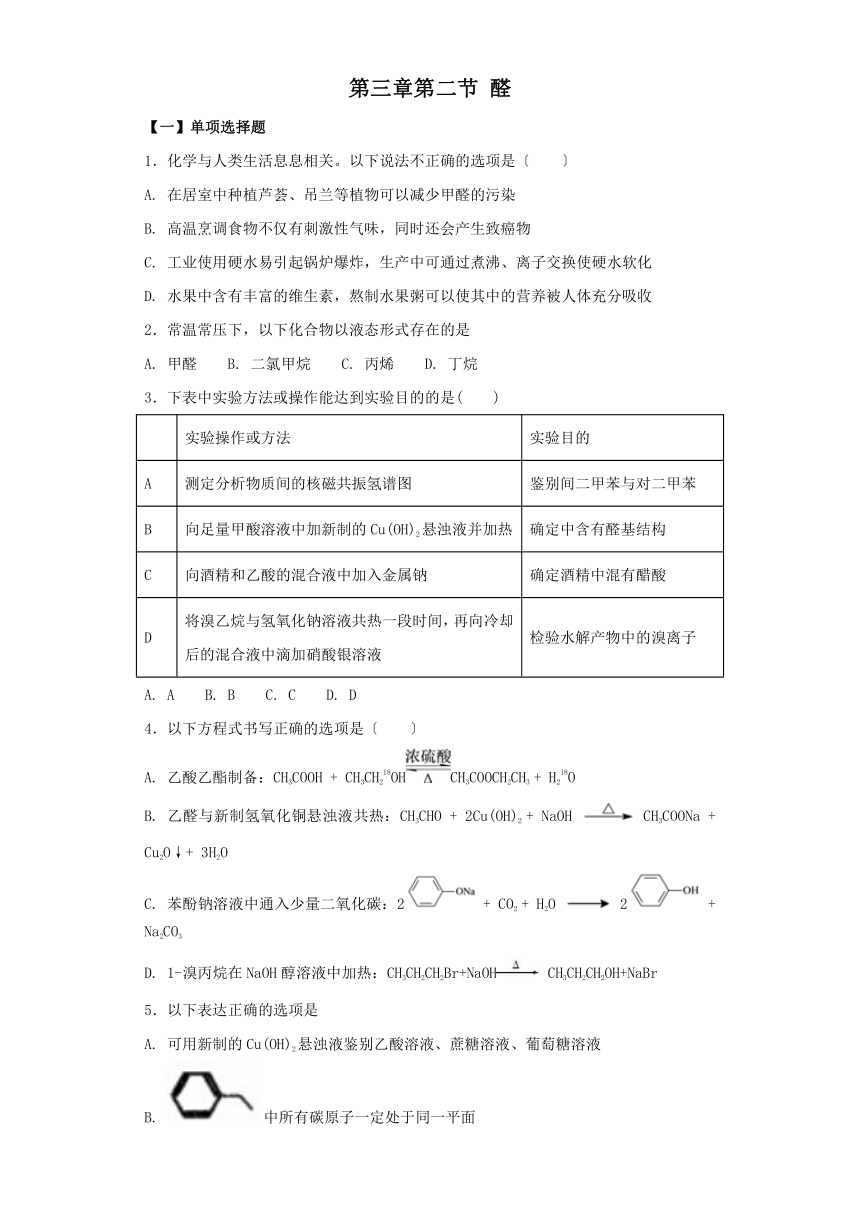 第三章第二节 醛
【一】单项选择题
1．化学与人类生活息息相关。以下说法不正确的选项是〔　　〕
A. 在居室中种植芦荟、吊兰等植物可以减少甲醛的污染
B. 高温烹调食物不仅有刺激性气味，同时还会产生致癌物
C. 工业使用硬水易引起锅炉爆炸，生产中可通过煮沸、离子交换使硬水软化
D. 水果中含有丰富的维生素，熬制水果粥可以使其中的营养被人体充分吸收
2．常温常压下，以下化合物以液态形式存在的是
A. 甲醛　　B. 二氯甲烷　　C. 丙烯　　D. 丁烷
3．下表中实验方法或操作能达到实验目的的是(　　)
实验操作或方法　实验目的
A　测定分析物质间的核磁共振氢谱图　鉴别间二甲苯与对二甲苯
B　向足量甲酸溶液中加新制的Cu(OH)₂悬浊液并加热　确定中含有醛基结构
C　向酒精和乙酸的混合液中加入金属钠　确定酒精中混有醋酸
D　将溴乙烷与氢氧化钠溶液共热一段时间，再向冷却
后的混合液中滴加硝酸银溶液　检验水解产物中的溴离子
A. A　　B. B　　C. C　　D. D
4．以下方程式书写正确的选项是〔　　〕
A. 乙酸乙酯制备：CH₃COOH + CH₃CH₂¹⁸OH 浓硫酸 Δ CH₃COOCH₂CH₃ + H₂¹⁸O
B. 乙醛与新制氢氧化铜悬浊液共热：CH₃CHO + 2Cu(OH)₂ + NaOH △ CH₃COONa +
Cu₂O↓+ 3H₂O
C. 苯酚钠溶液中通入少量二氧化碳：2 ONa + CO₂ + H₂O 2 OH +
Na₂CO₃
D. 1-溴丙烷在NaOH醇溶液中加热：CH₃CH₂CH₂Br+NaOH Δ CH₃CH₂CH₂OH+NaBr
5．以下表达正确的选项是
A. 可用新制的Cu(OH)₂悬浊液鉴别乙酸溶液、蔗糖溶液、葡萄糖溶液
B. 中所有碳原子一定处于同一平面